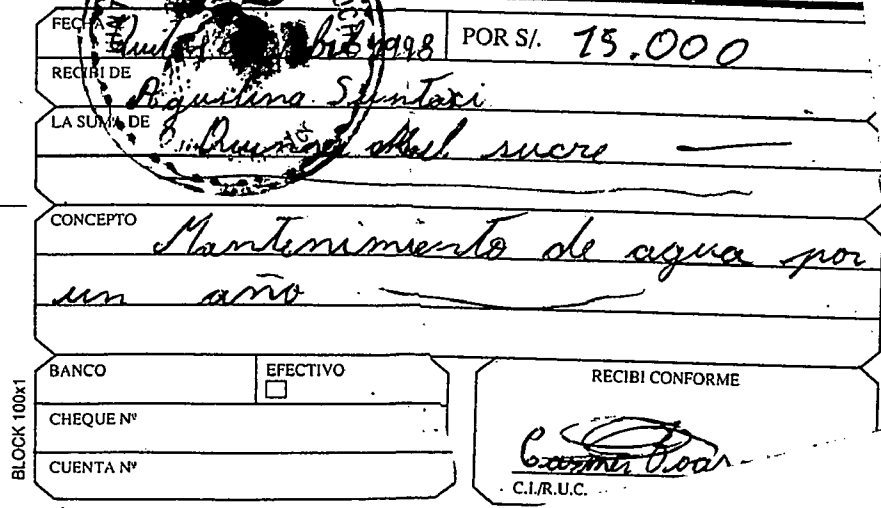 FECHA Quito, 1998 POR S/. 15.000
RECIBI DE Agustina Suntaxi
LA SUMA DE Quince Mil sucre
CONCEPTO Mantenimiento de agua por
un año
BANCO EFECTIVO RECIBI CONFORME
CHEQUE Nº
CUENTA Nº
Carmen
C.I./R.U.C.
BLOCK 100x1